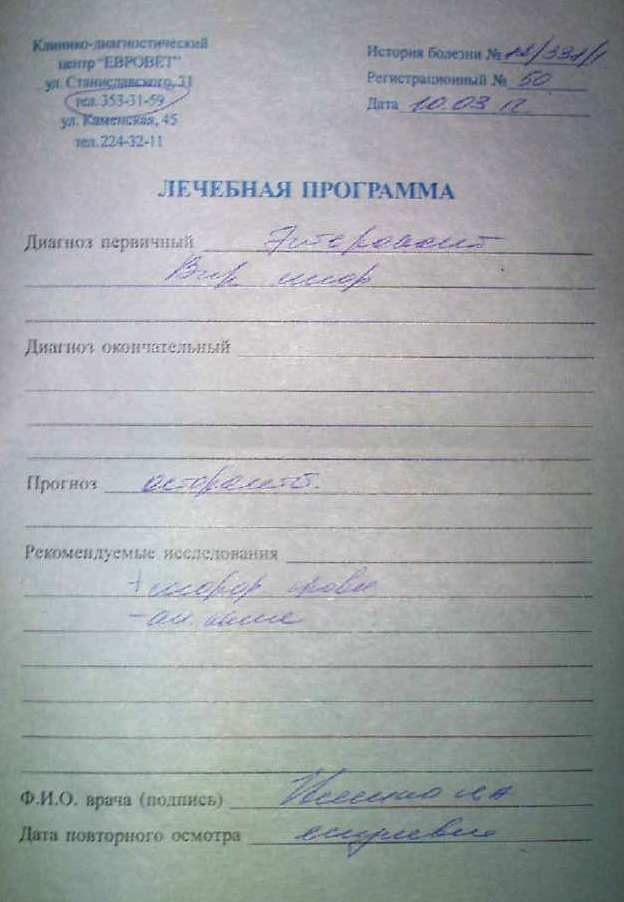 Клинико-диагностический
центр "ЕВРОВЕТ"
ул. Станиславского, 21
тел. 353-31-59
ул. Каменская, 45
тел. 224-32-11
История болезни № 12/331/1
Регистрационный № 50
Дата 10.03 12.
ЛЕЧЕБНАЯ ПРОГРАММА
Диагноз первичный
Вир
Диагноз окончательный
Прогноз осторожн.
Рекомендуемые исследования
крови
- ан.
Ф.И.О. врача (подпись)
Дата повторного осмотра